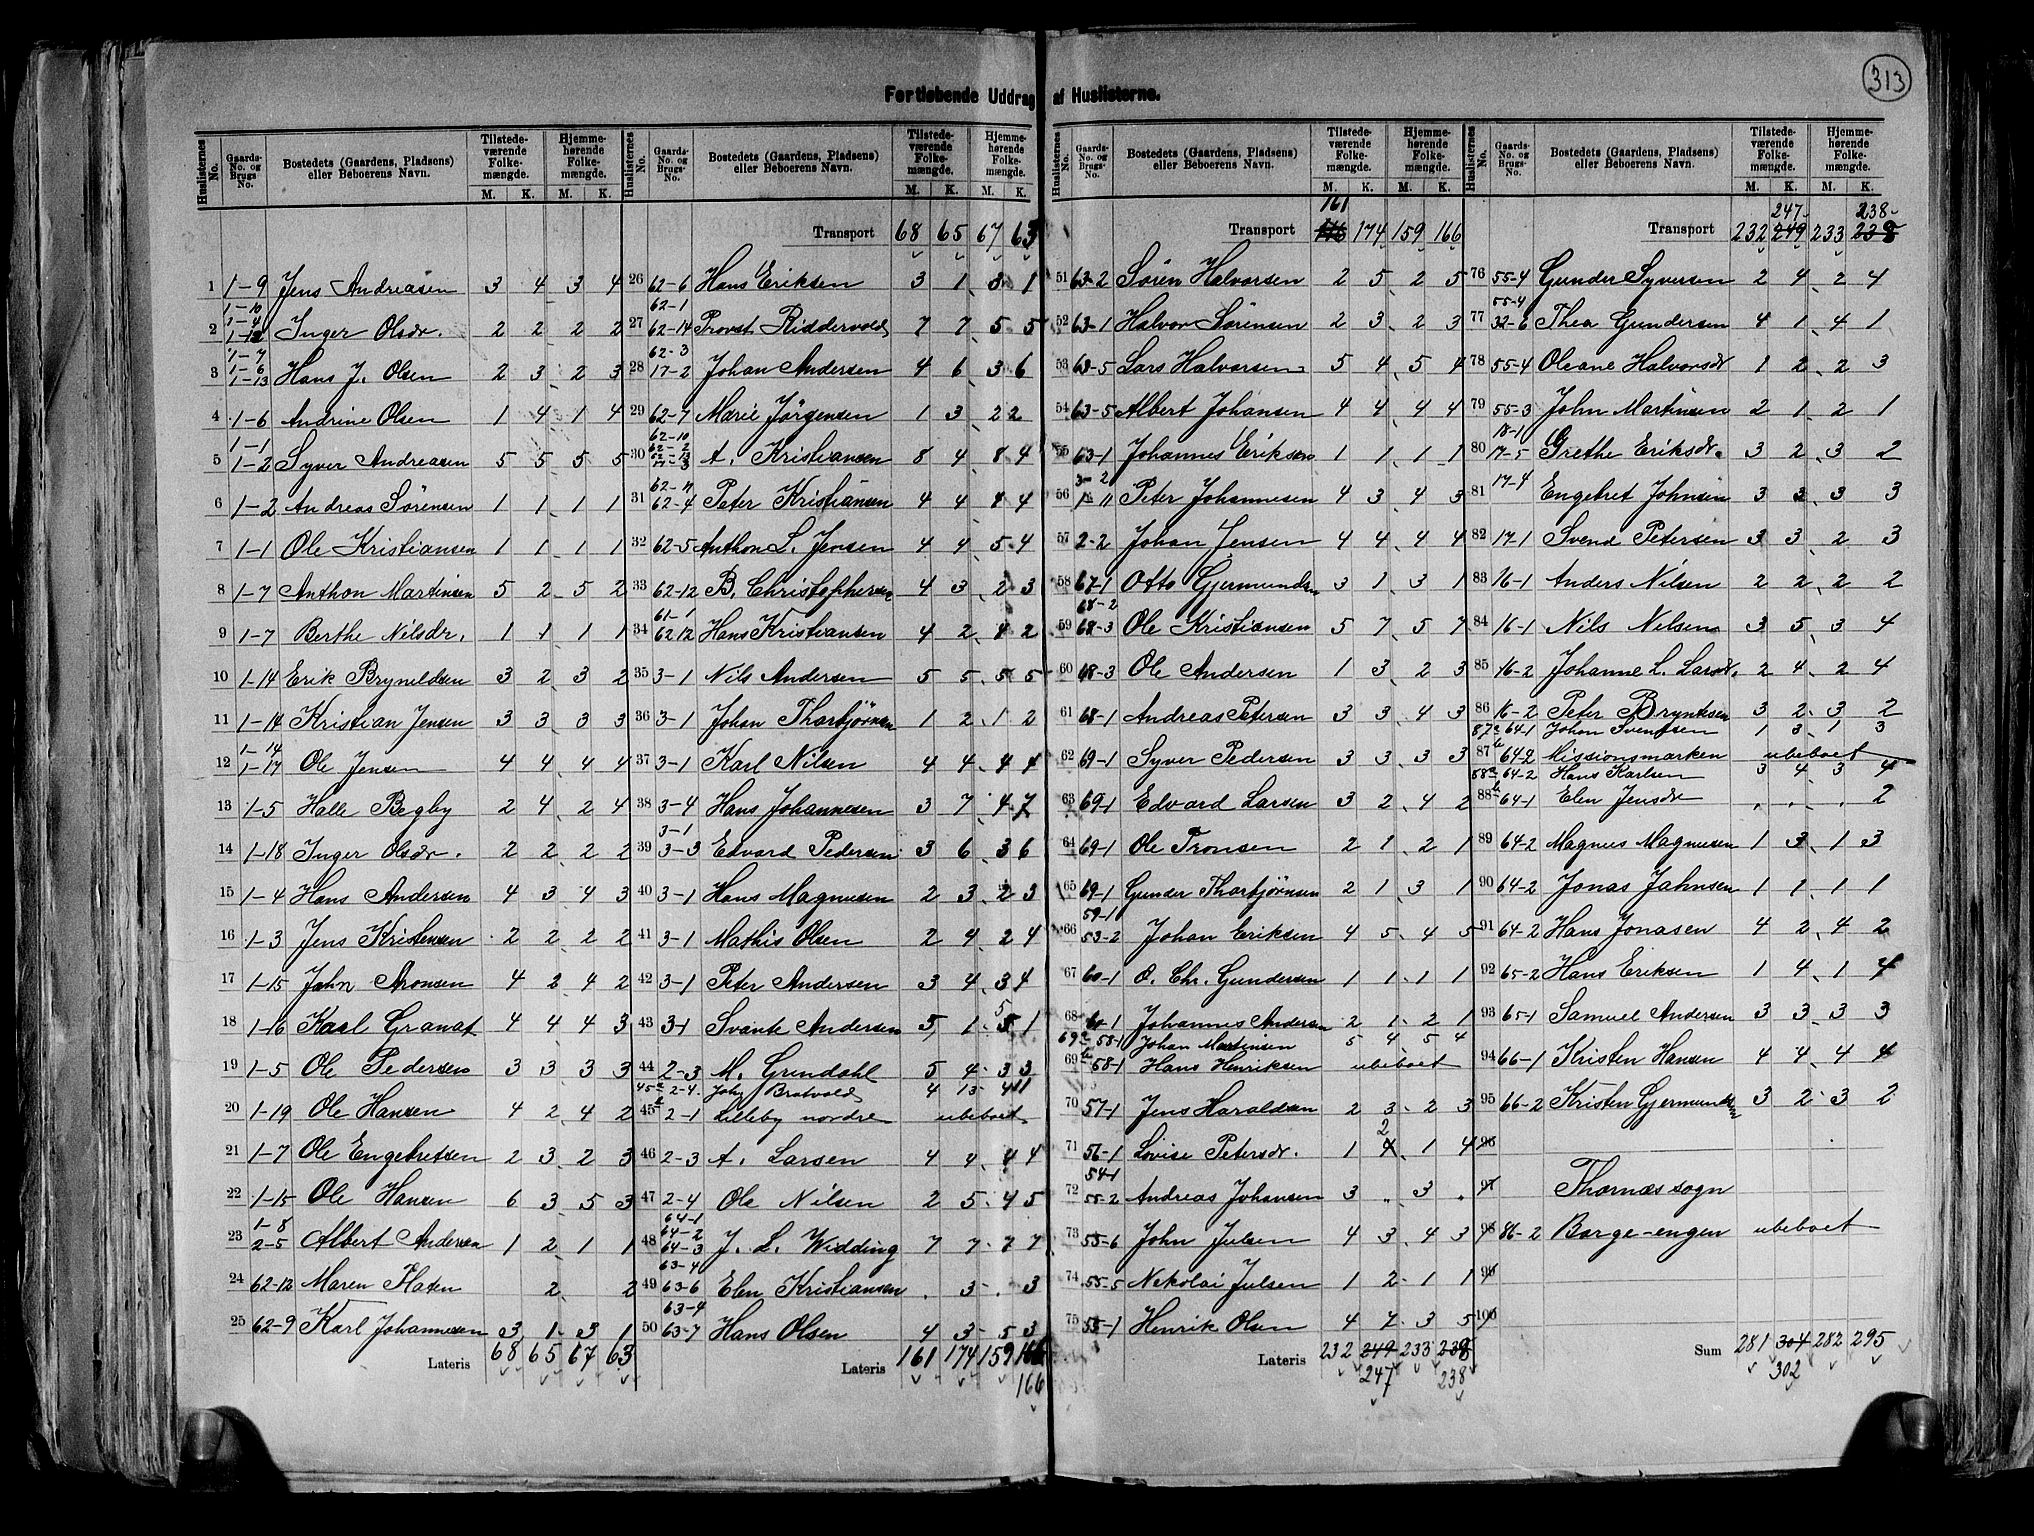 313
Fortløbende Uddrag af Huslisterne.
Huslisternes No. Gaards-No. og Brugs-No. Bostedets (Gaardens, Pladsens) eller Beboerens Navn. Tilstedeværende Folkemængde. M. K. Hjemmehørende Folkemængde. M. K.
1 1-9 Jens Andreasen 3 4 3 4
2 1-10 1-4 1-12 Inger Olsdr. 2 2 2 2
3 1-7 1-6 1-13 Hans J. Olsen 2 3 2 3
4 1-6 Andrine Olsen 1 4 1 4
5 1-1 1-2 Syver Andreasen 5 5 5 5
6 1-2 Andreas Sørensen 1 1 1 1
7 1-1 Ole Kristiansen 1 1 1 1
8 1-7 Anthon Martinsen 5 2 5 2
9 1-7 Berthe Nilsdr. 1 1 1 1
10 1-14 Erik Brynildsen 3 2 3 2
11 1-14 Kristian Jensen 3 3 3 3
12 1-14 1-17 Ole Jensen 4 4 4 4
13 1-5 Halle Begby 2 4 2 4
14 1-18 Inger Olsdr. 2 2 2 2
15 1-4 Hans Andersen 4 3 4 3
16 1-3 Jens Kristensen 2 2 2 2
17 1-15 John Aronsen 4 2 4 2
18 1-16 Karl Granat 4 4 4 3
19 1-5 Ole Pedersen 3 3 3 3
20 1-19 Ole Hansen 4 2 4 2
21 1-7 Ole Engebretsen 2 3 2 3
22 1-15 Ole Hansen 6 3 5 3
23 1-8 2-5 Albert Andersen 1 2 1 1
24 62-12 Maren Platen 2 2
25 62-9 Karl Johannesen 3 1 3 1
Lateris 68 65 67 63
Huslisternes No. Gaards-No. og Brugs-No. Bostedets (Gaardens, Pladsens) eller Beboerens Navn. Tilstedeværende Folkemængde. M. K. Hjemmehørende Folkemængde. M. K.
Transport 68 65 67 63
26 62-6 Hans Eriksen 3 1 3 1
27 62-1 62-14 Provst Riddervold 7 7 5 5
28 62-3 17-2 Johan Andersen 4 6 3 6
29 62-7 Marie Jørgensen 1 3 2 2
30 62-10 62-2 62-13 17-3 A. Kristiansen 8 4 8 4
31 62-11 62-4 Peter Kristiansen 4 4 4 4
32 62-5 Anthon L. Jensen 4 4 5 4
33 62-12 B. Christophersen 4 3 2 3
34 61-1 62-12 Hans Kristiansen 4 2 4 2
35 3-1 Nils Andersen 5 5 5 5
36 3-1 Johan Thorbjørnsen 1 2 1 2
37 3-1 Karl Nilsen 4 4 4 4
38 3-4 Hans Johannesen 3 7 4 7
39 3-1 3-3 Edvard Pedersen 3 6 3 6
40 3-1 Hans Magnusen 2 3 2 3
41 3-1 Mathis Olsen 2 4 2 4
42 3-1 Peter Andersen 3 4 3 4
43 3-1 Svante Andersen 5 1 5 1
44 2-3 M. Grindahl 5 4 3 3
45a 2-4 Johs Bratvold 4 13 4 11
45b 2-1 Lilleby nordre ubeboet
46 2-3 A. Larsen 4 4 4 4
47 2-4 Ole Nilsen 2 5 4 5
48 64-1 64-2 64-3 J. L. Widding 7 7 7 7
49 63-4 63-6 Elen Kristiansen . 3 . 3
50 63-4 63-7 Hans Olsen 4 3 5 3
Lateris 161 174 159 166
166
Huslisternes No. Gaards-No. og Brugs-No. Bostedets (Gaardens, Pladsens) eller Beboerens Navn. Tilstedeværende Folkemængde. M. K. Hjemmehørende Folkemængde. M. K.
161
Transport 174 159 166
51 63-2 Sören Halvorsen 2 5 2 5
52 63-1 Halvor Sörensen 2 3 2 3
53 63-5 Lars Halvorsen 5 4 5 4
54 63-5 Albert Johansen 4 4 4 4
55 63-1 Johannes Eriksen 1 1 1 1
56 3-2 1-11 Peter Johannesen 4 3 4 3
57 2-2 Johan Jensen 4 4 4 4
58 67-1 Otto Gjermundsen 3 1 3 1
59 68-2 68-3 Ole Kristiansen 5 7 5 7
60 68-3 Ole Andersen 1 3 2 3
61 68-1 Andreas Petersen 3 3 4 3
62 69-1 Syver Pedersen 3 3 3 3
63 69-1 Edvard Larsen 3 2 4 2
64 69-1 Ole Tronsen 2 1 2 1
65 69-1 Gunder Thorbjørnsen 2 1 3 1
66 59-1 53-2 Johan Eriksen 4 5 4 5
67 60-1 O. Chr. Gundersen 1 1 1 1
68 60-1 Johannes Andersen 2 1 2 1
69a 58-1 Johan Martinsen 5 4 5 4
69b 58-1 Hans Henriksen ubeboet
70 57-1 Jens Haraldsen 2 3 2 3
71 56-1 Lovise Petersdr. 1 2 1 4
72 54-1 55-2 Andreas Johansen 3 . 3 .
73 55-6 John Julsen 4 3 4 3
74 55-5 Nekolai Julsen 1 2 1 1
75 55-1 Henrik Olsen 4 7 3 5
Lateris 232 249 233 238
247 238
Huslisternes No. Gaards-No. og Brugs-No. Bostedets (Gaardens, Pladsens) eller Beboerens Navn. Tilstedeværende Folkemængde. M. K. Hjemmehørende Folkemængde. M. K.
247 238
Transport 232 249 233 238
76 55-4 Gunder Syversen 2 4 2 4
77 55-4 32-6 Thea Gundersen 4 1 4 1
78 55-4 Oleane Halvorsdr 1 2 2 3
79 55-3 John Martinsen 2 1 2 1
80 18-1 17-5 Grethe Eriksdr. 3 2 3 2
81 17-4 Engebret Johnsen 3 3 3 3
82 17-1 Svend Petersen 3 3 2 3
83 16-1 Anders Nilsen 2 2 2 2
84 16-1 Nils Nilsen 3 5 3 4
85 16-2 Johanne L. Larsdr. 2 4 2 4
86 16-2 Peter Bryntesen 3 2 3 2
87a 64-1 Johan Svendsen 1 3 1 3
87b 64-2 Missionsmarken ubeboet
88a 64-2 Hans Karlsen 3 4 3 4
88b 64-1 Elen Jensdr . . . 2
89 64-2 Magnus Magnusen 1 3 1 3
90 64-2 Jonas Jahnsen 1 1 1 1
91 64-2 Hans Jonasen 4 2 4 2
92 65-2 Hans Eriksen 1 4 1 4
93 65-1 Samuel Andersen 3 3 3 3
94 66-1 Kristen Hansen 4 4 4 4
95 66-2 Kristen Gjermundsen 3 2 3 2
96
97 Thornæs sogn
98 86-2 Borge-engen ubeboet
99
100
Sum 281 304 282 295
302